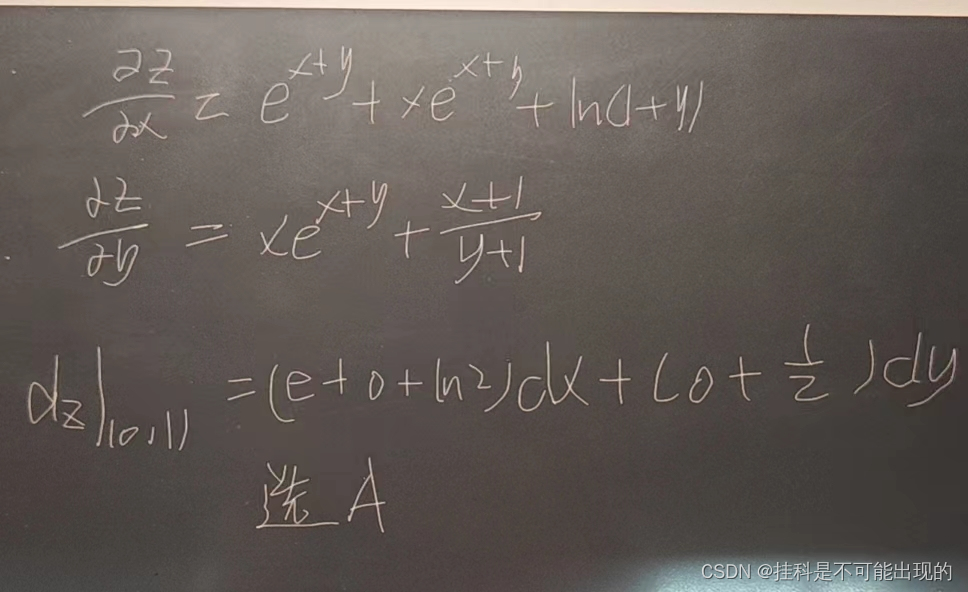 ∂z/∂x = e^{x+y} + xe^{x+y} + ln(1+y)
∂z/∂y = xe^{x+y} + \frac{x+1}{y+1}
dz|_{(0,1)} = (e+0+ln2)dx + (0+\frac{1}{2})dy
选A
CSDN @挂科是不可能出现的